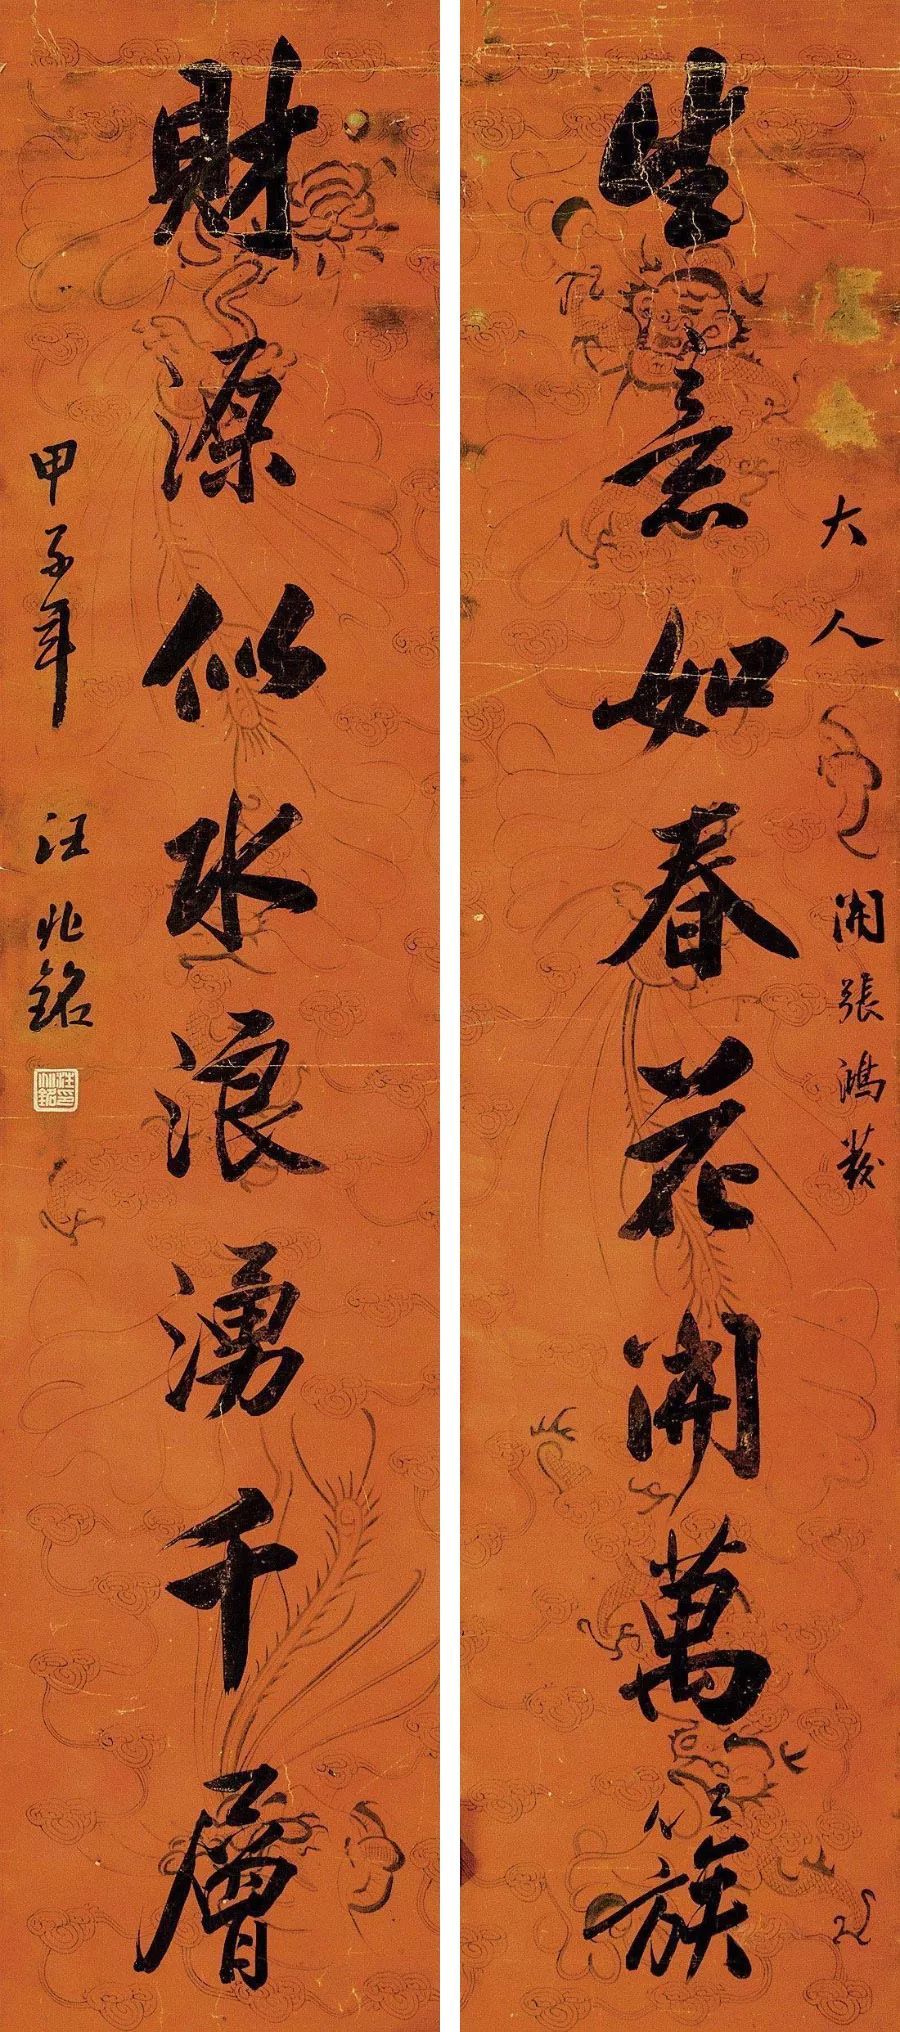 大人 開張鴻發
生意如春花開萬簇
財源似水浪湧千層
甲子年 汪兆銘
汪兆銘印